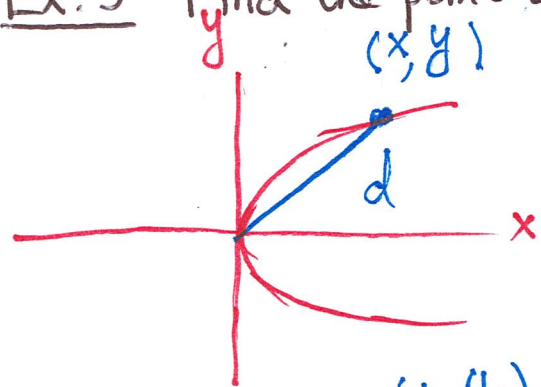 Ex. 3 Find the point
y
(x, y)
d
x